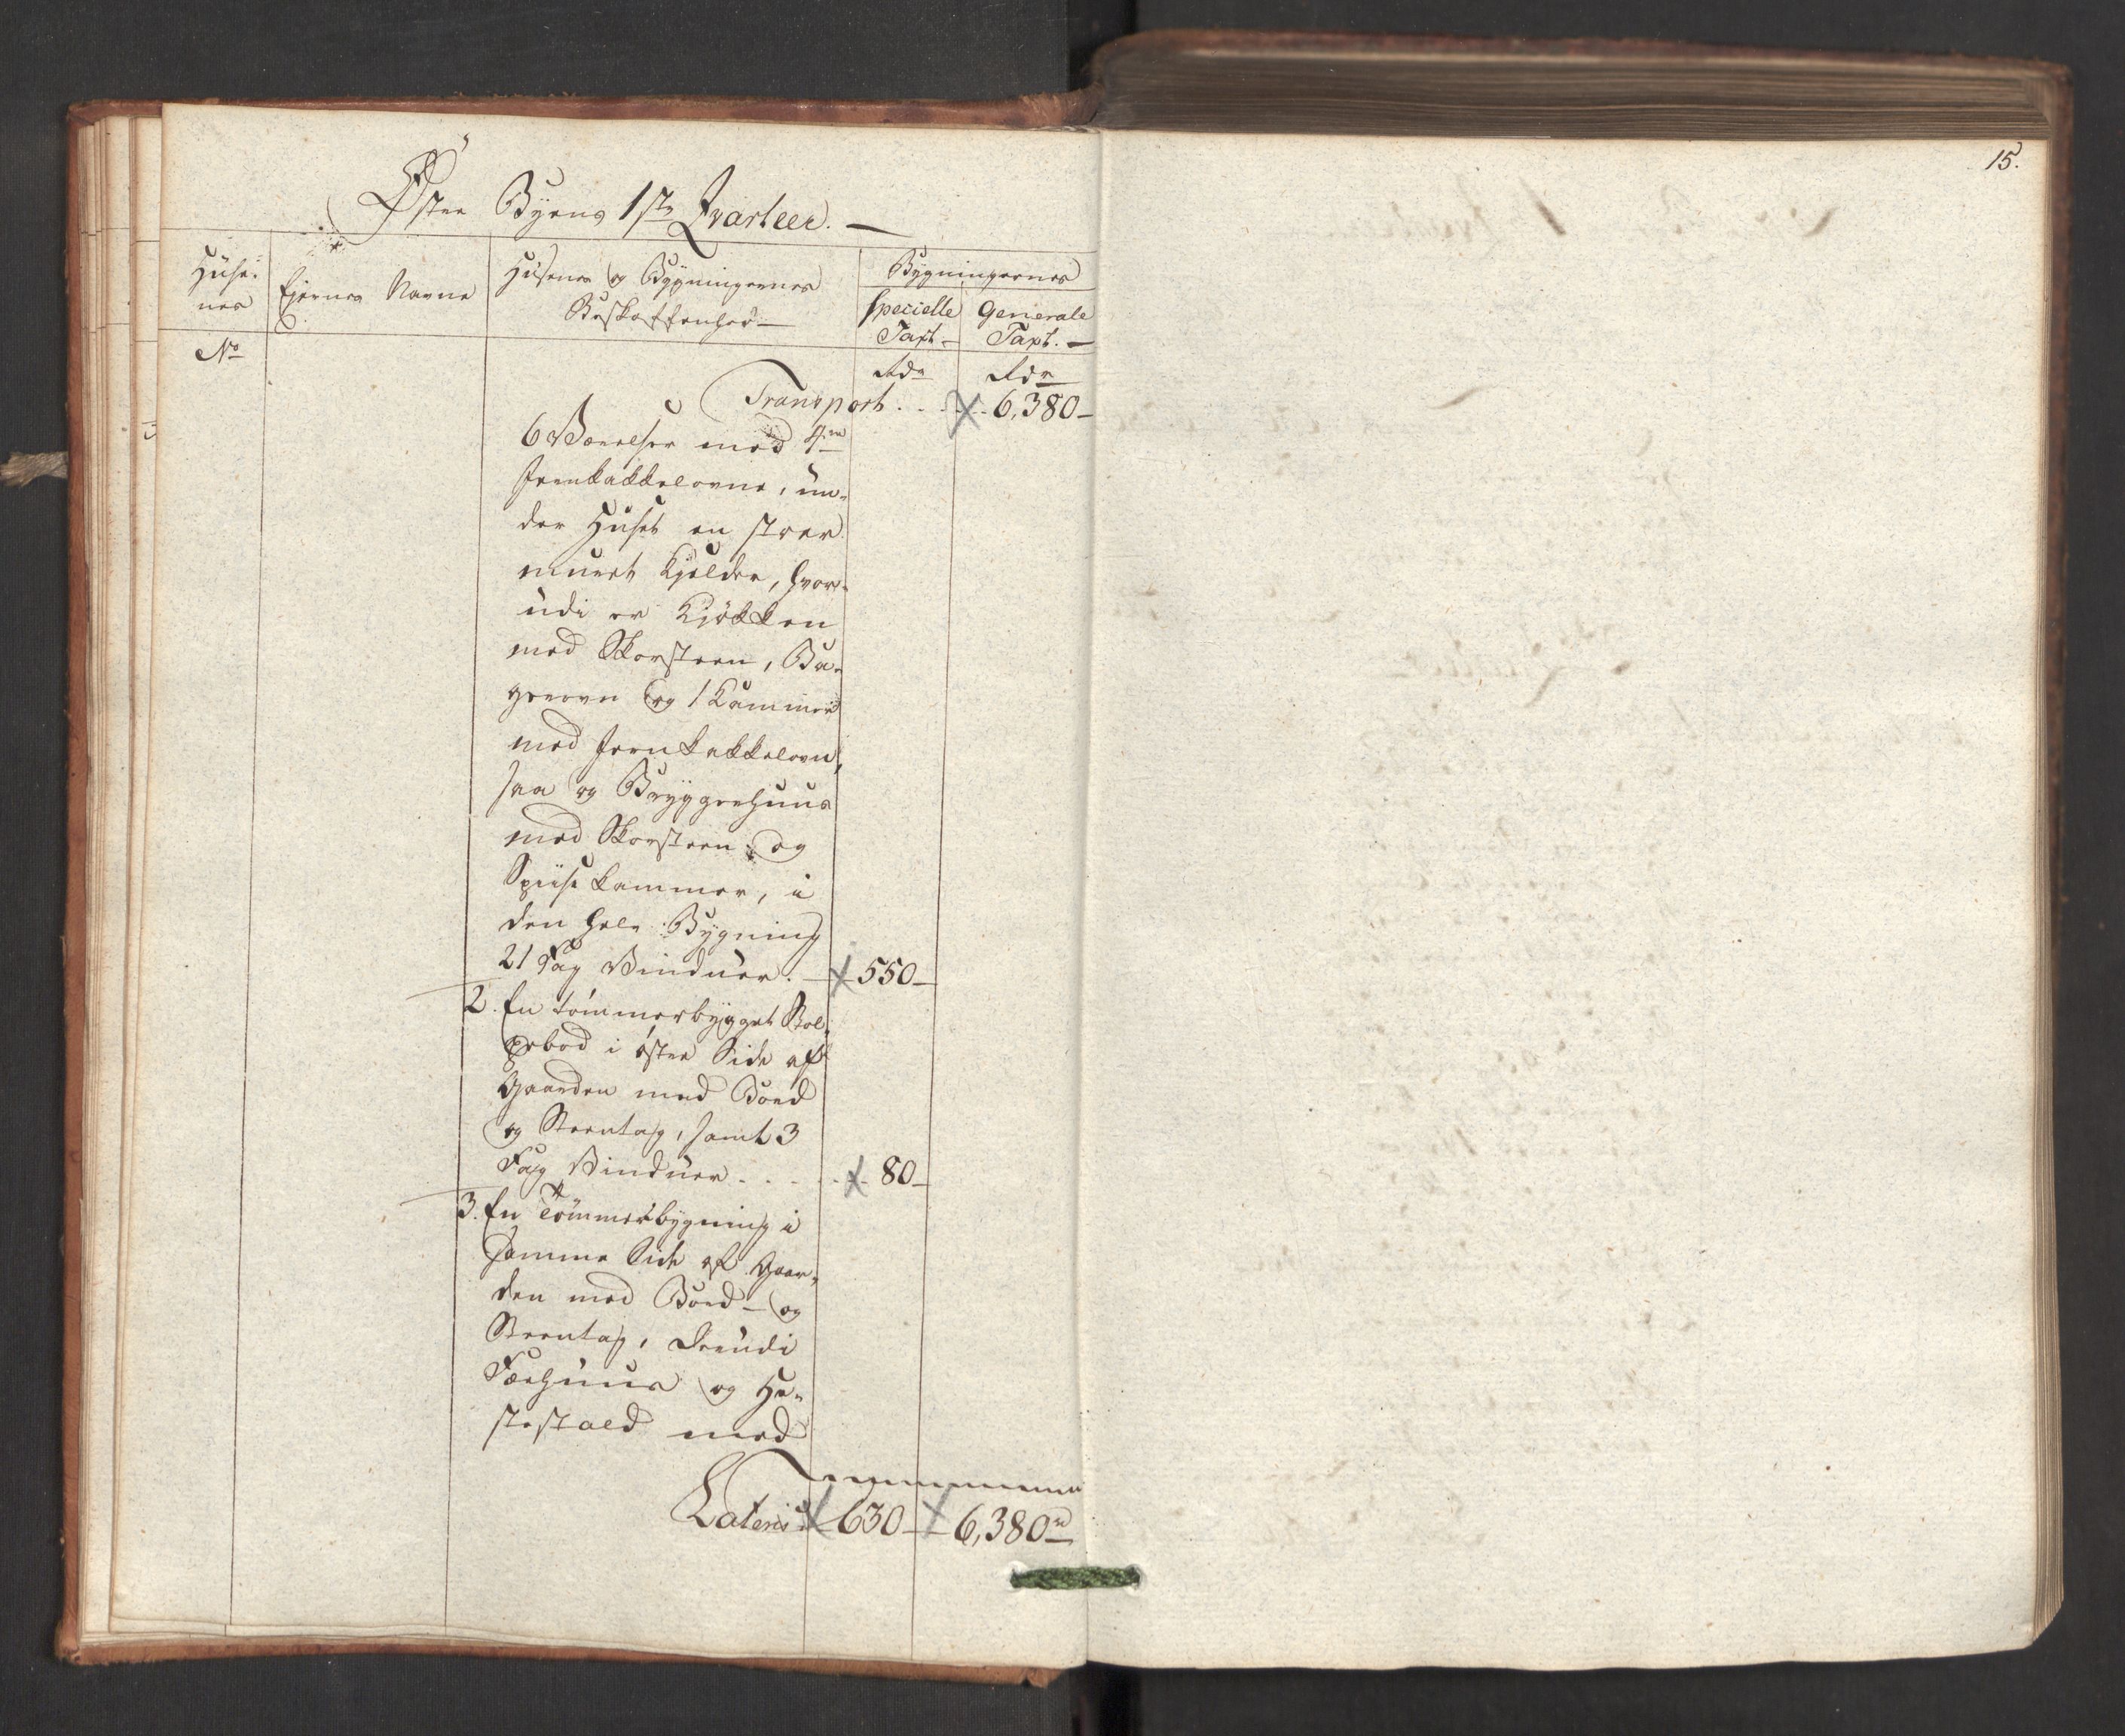 15.
Øster Byens 1ste Qvarteer. —
Huse-
nes
Ejernes Navne
Husenes og Bygningernes
Beskaffenhed —
Bygningernes
Specielle
Taxt —
Generale
Taxt. —
No
Rdr
Rdr
Transport . . . . 6,380 —
6 Værelser med 4re
Jernkakkelovne, un-
der Huset en stoer
muret Kjelder, hvor-
udi er Kjökken
med Skorsteen, Ba-
gerovn og 1 Kammer
med Jernkakkelovn,
saa og Bryggerhuus
med Skorsteen og
Spiisekammer, i
den hele Bygning
21 Fag Vinduer. — 550 —
2. En tömmerbygget
i öster Side af
Gaarden med Bord
og Steentag, samt 3
Fag Vinduer . . . . . 80 —
3. En Tömmerbygning i
samme Side af Gaar-
den med Bord- og
Steentag, derudi
Fæehuus og He-
stestald med
Lateris 630 — 6,380